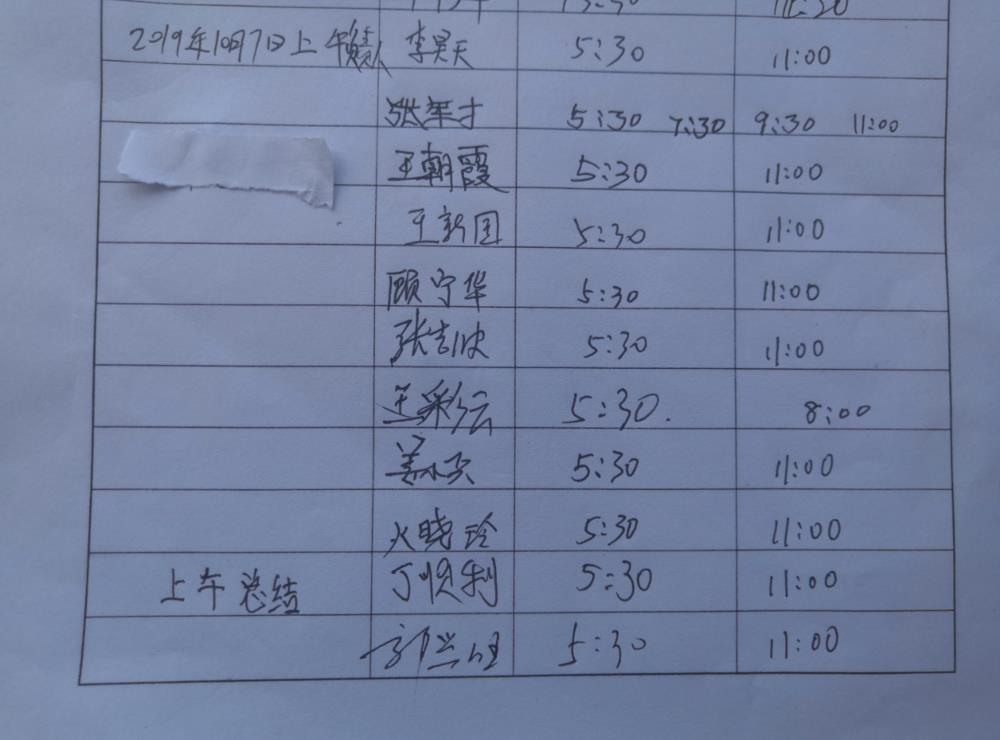 2019年10月7日上午 李昊天 5:30 11:00
张军才 5:30 7:30 9:30 11:00
王朝霞 5:30 11:00
王新国 5:30 11:00
顾宁华 5:30 11:00
5:30 11:00
王彩云 5:30. 8:00
5:30 11:00
火晓玲 5:30 11:00
上午总结 丁顺利 5:30 11:00
5:30 11:00